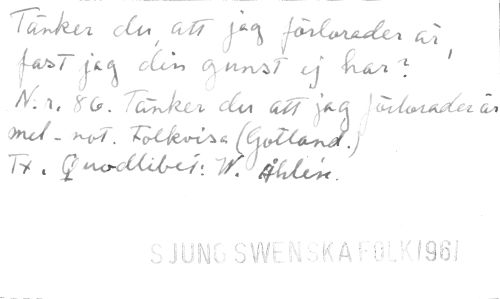 Tänker du, att jag förlorader är,
fast jag din gunst ej har?
N.r. 86. Tänker du att jag förlorader är
mel - not. Folkvisa (Gotland.)
Tx. Quodlibet: W. Åhlén.
SJUNG SWENSKA FOLK 1961